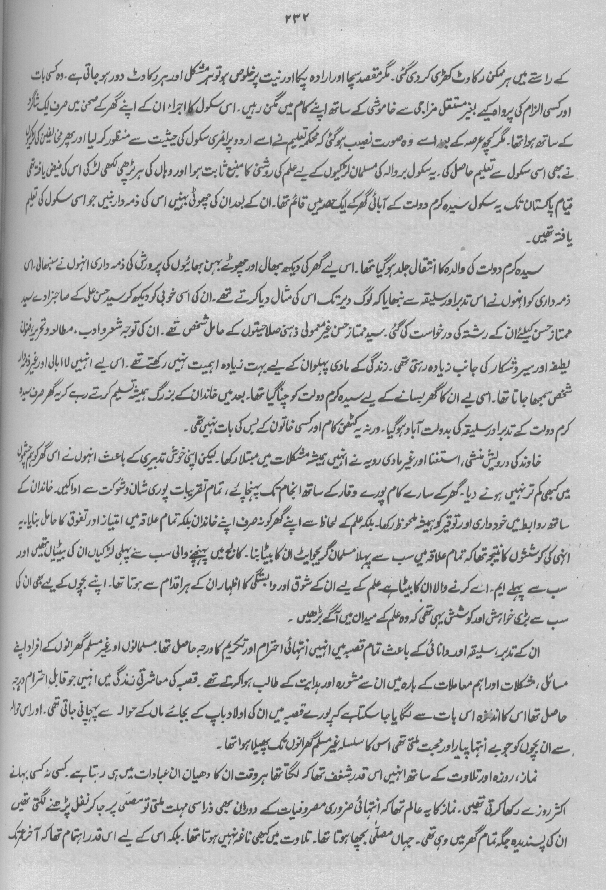 ۲۳۲
کے راستے میں ہر ممکن رکاوٹ کھڑی کر دی گئی۔ مگر مقصد سچا اور ارادہ پکا اور نیت پر خلوص ہو تو ہر مشکل اور ہر رکاوٹ دور ہو جاتی ہے۔ وہ کسی بات
اور کسی الزام کی پرواہ کیے بغیر مستقل مزاجی سے خاموشی کے ساتھ اپنے کام میں مگن رہیں۔ اس سکول کا اجراء ان کے اپنے گھر کے صحن میں صرف ایک شاگرد
کے ساتھ ہوا تھا۔ مگر کچھ عرصہ کے بعد اسے وہ صورت نصیب ہو گئی کہ محکمہ تعلیم نے اسے اردو پرائمری سکول کی حیثیت سے منظور کر لیا اور پھر مخالفین کی
نے بھی اسی سکول سے تعلیم حاصل کی۔ یہ سکول بروالہ کی مسلمان لڑکیوں کے لیے علم کی روشنی کا منبع ثابت ہوا اور وہاں کی ہر پڑھی لکھی لڑکی اس کی فیض یافتہ تھی
قیام پاکستان تک یہ سکول سیدہ کرم دولت کے آبائی گھر کے ایک حصہ میں قائم تھا۔ ان کے بعد ان کی چھوٹی بہنیں اس کی ذمہ دار بنیں جو اسی سکول کی تعلیم
یافتہ تھیں۔
سیدہ کرم دولت کی والدہ کا انتقال جلد ہو گیا تھا۔ اس لیے گھر کی دیکھ بھال اور چھوٹے بہن بھائیوں کی پرورش کی ذمہ داری انہوں نے سنبھالی۔ اس
ذمہ داری کو انہوں نے اس تدبر اور سلیقہ سے نبھایا کہ لوگ دیر تک اس کی مثال دیا کرتے تھے۔ ان کی اسی خوبی کو دیکھ کر سید حسن علی کے صاحبزادے سید
ممتاز حسن کیلئے ان کے رشتہ کی درخواست کی گئی۔ سید ممتاز حسن غیر معمولی ذہنی صلاحیتوں کے حامل شخص تھے۔ ان کی توجہ شعر و ادب، مطالعہ و تحریر
لطیفہ اور سیر و شکار کی جانب زیادہ رہتی تھی۔ زندگی کے مادی پہلو ان کے لیے بہت زیادہ اہمیت نہیں رکھتے تھے۔ اس لیے انہیں لا ابالی اور غیر ذمہ دار
شخص سمجھا جاتا تھا۔ اسی لیے ان کا گھر بسانے کے لیے سیدہ کرم دولت کو چنا گیا تھا۔ بعد میں خاندان کے بزرگ ہمیشہ تسلیم کرتے رہے کہ یہ گھر صرف سیدہ
کرم دولت کے تدبر اور سلیقہ کی بدولت آباد ہو گیا۔ ورنہ یہ کٹھن کام اور کسی خاتون کے بس کی بات نہیں تھی۔
خاوند کی درویش منشی، استغنا اور غیر مادی رویہ نے انہیں ہمیشہ مشکلات میں مبتلا رکھا۔ لیکن اپنی خوش تدبیری کے باعث انہوں نے اس گھر کو ہم چشموں
میں کبھی کم تر نہیں ہونے دیا۔ گھر کے سارے کام پورے وقار کے ساتھ انجام تک پہنچائے، تمام تقریبات پوری شان و شوکت سے ادا کیں۔ خاندان کے
ساتھ روابط میں خود داری اور توقیر کو ہمیشہ ملحوظ رکھا۔ بلکہ علم کے لحاظ سے اپنے گھر کو نہ صرف اپنے خاندان بلکہ تمام علاقہ میں امتیاز اور تفوق کا حامل بنایا۔ یہ
انہی کی کوششوں کا نتیجہ تھا کہ تمام علاقہ میں سب سے پہلا مسلمان گریجوایٹ ان کا بیٹا بنا۔ کالج میں پہنچنے والی سب سے پہلی لڑکیاں ان کی بیٹیاں تھیں اور
سب سے پہلے ایم۔ اے کرنے والا ان کا بیٹا ہے علم کے لیے ان کے شوق اور وابستگی کا اظہار ان کے ہر اقدام سے ہوتا تھا۔ اپنے بچوں کے لیے بھی ان کی
سب سے بڑی خواہش اور کوشش یہی تھی کہ وہ علم کے میدان میں آگے بڑھیں۔
ان کے تدبر، سلیقہ اور دانائی کے باعث تمام قصبہ میں انہیں انتہائی احترام اور تکریم کا درجہ حاصل تھا۔ مسلمانوں اور غیر مسلم گھرانوں کے افراد اپنے
مسائل، مشکلات اور اہم معاملات کے بارہ میں ان سے مشورہ اور ہدایت کے طالب ہوا کرتے تھے۔ قصبہ کی معاشرتی زندگی میں انہیں جو قابل احترام درجہ
حاصل تھا اس کا اندازہ اس بات سے لگایا جا سکتا ہے کہ پورے قصبہ میں ان کی اولاد باپ کے بجائے ماں کے حوالہ سے پہچانی جاتی تھی۔ اور اس حوالہ
سے ان بچوں کو جو بے انتہا پیار اور محبت ملتی تھی اس کا سلسلہ غیر مسلم گھرانوں تک پھیلا ہوا تھا۔
نماز، روزہ اور تلاوت کے ساتھ انہیں اس قدر شغف تھا کہ لگتا تھا ہر وقت ان کا دھیان ان عبادات میں ہی رہتا ہے۔ کسی نہ کسی بہانے
اکثر روزے رکھا کرتی تھیں۔ نماز کا یہ عالم تھا کہ انتہائی ضروری مصروفیات کے دوران بھی ذرا سی مہلت ملتی تو مصلیٰ پر جا کر نفل پڑھنے لگتی تھیں
ان کی پسندیدہ جگہ تمام گھر میں وہی تھی۔ جہاں مصلیٰ بچھا ہوتا تھا۔ تلاوت میں کبھی ناغہ نہیں ہوتا تھا۔ بلکہ اس کے لیے اس قدر اہتمام تھا کہ آخر تک